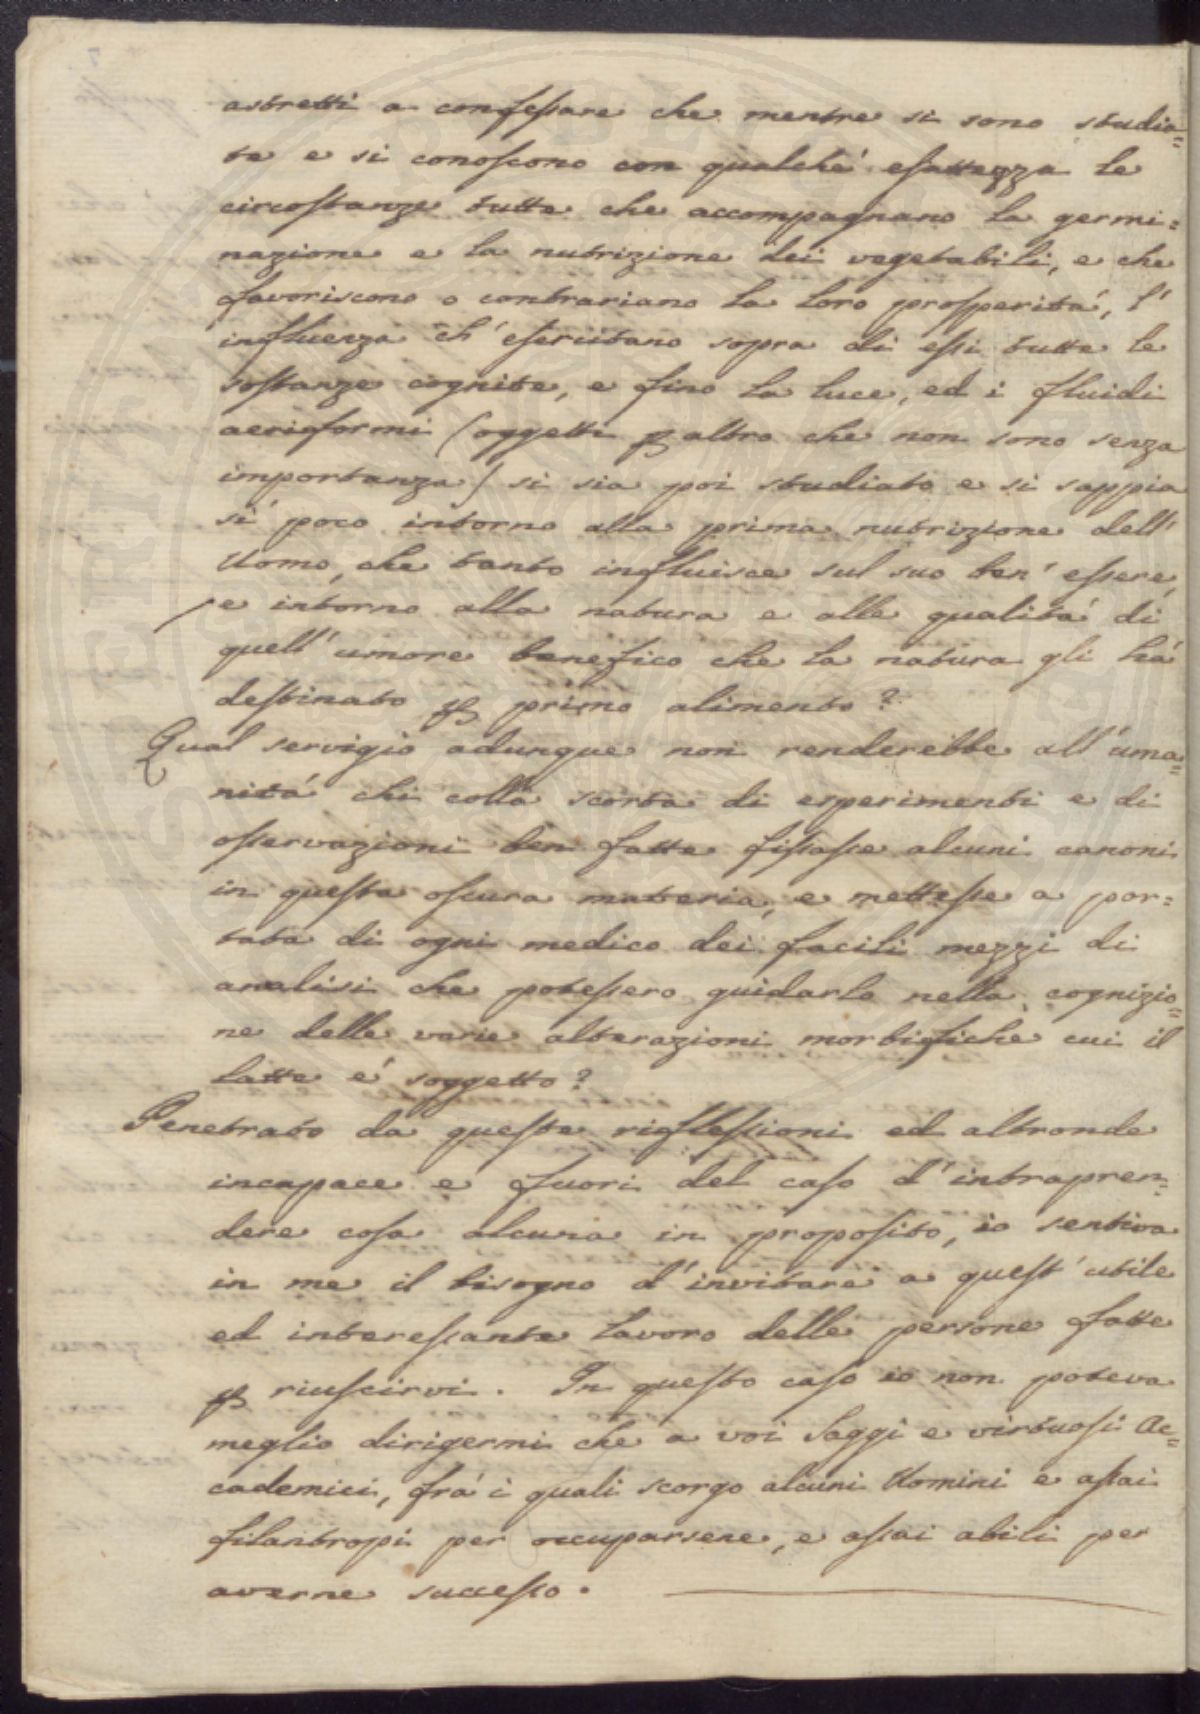 astretti a confessare che mentre si sono studia=
te e si conoscono con qualche esattezza le
circostanze tutte che accompagnano la germi=
nazione e la nutrizione dei vegetabili, e che
favoriscono o contrariano la loro prosperitá, l'
influenza ch' esercitano sopra di essi tutte le
sostanze cognite, e fino la luce, ed i fluidi
aeriformi (oggetti p altro che non sono senza
importanza) si sia poi studiato e si sappia
sì poco intorno alla prima nutrizione dell'
Uomo, che tanto influisce sul suo ben' essere,
e intorno alla natura e alle qualitá di
quell' umore benefico che la natura gli há
destinato p primo alimento?
Qual servigio adunque non renderebbe all' uma=
nitá chi colla scorta di esperimenti e di
osservazioni ben fatte fissasse alcuni canoni
in questa oscura materia, e mettesse a por=
tata di ogni medico dei facili mezzi di
analisi che potessero guidarlo nella cognizio=
ne delle varie alterazioni morbifiche cui il
latte é soggetto?
Penetrato da queste riflessioni ed altronde
incapace e fuori del caso d' intrapren=
dere cosa alcuna in proposito, io sentiva
in me il bisogno d' invitare a quest' utile
ed interessante lavoro delle persone fatte
p riuscirvi. In questo caso io non poteva
meglio dirigermi che a voi Saggi e virtuosi Ac=
cademici, frá i quali scorgo alcuni Uomini e assai
filantropi per occuparsene, e assai abili per
averne successo.